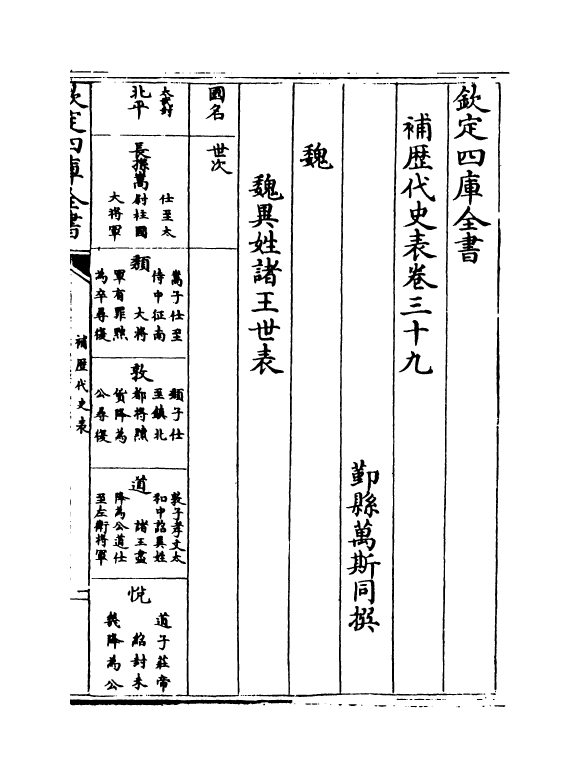 欽定四庫全書
補歷代史表卷三十九
鄞縣萬斯同撰
魏
魏異姓諸王世表
國名
世次
太武封
北平
長孫嵩
仕至太
尉柱國
大將軍
頹
嵩子仕至
侍中征南
大將
軍有罪黜
為卒尋復
敦
頹子仕
至鎮北
都將黷
貨降為
公尋復
道
敦子孝文太
和中詔異姓
諸王盡
降為公道仕
至左衛將軍
悅
道子莊帝
紹封未
幾降為公
欽定四庫全書
補歷代史表